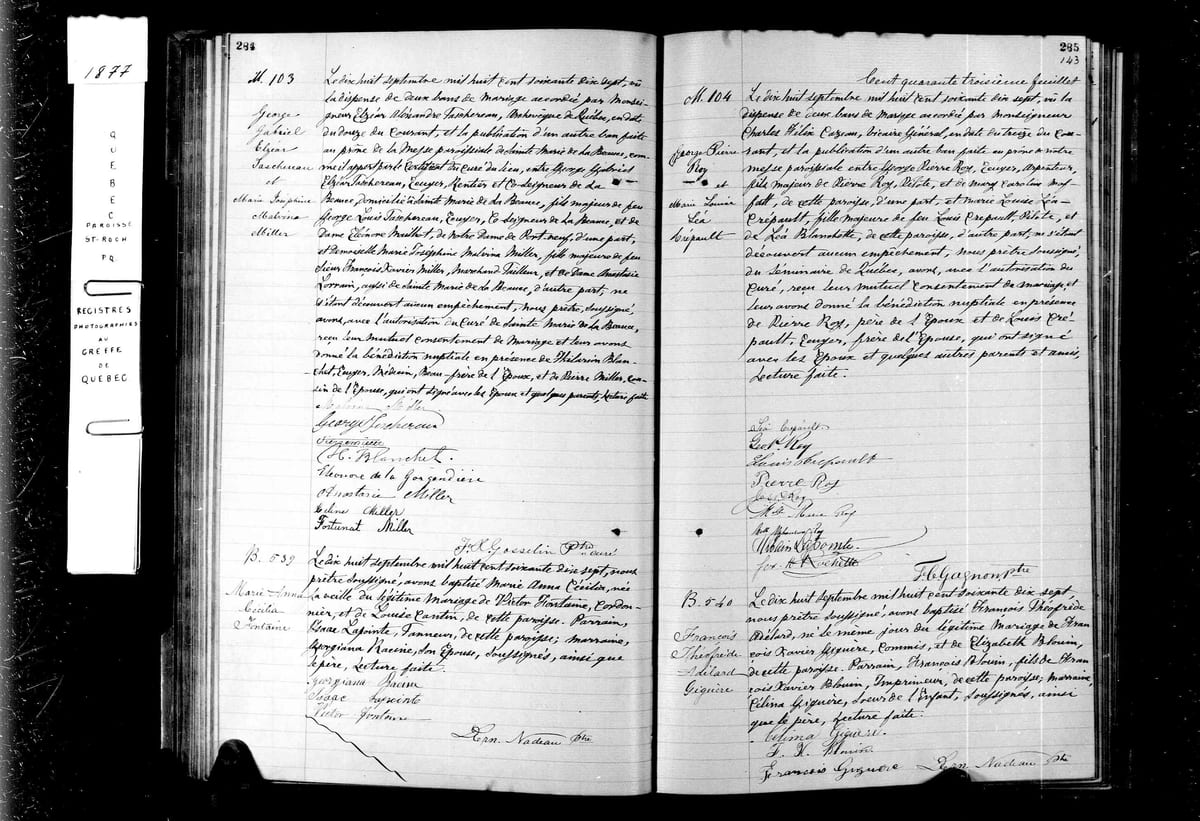 1877
QUEBEC
PAROISSE
ST-ROCH
PQ
REGISTRES
PHOTOGRAPHIES
AU
GREFFE
DE
QUEBEC
284
M. 103
George
Gabriel
Elzéar
Taschereau
et
Marie Joséphine
Malvina
Miller
Le dix huit septembre mil huit cent soixante dix sept, vû
la dispense de deux bans de Mariage accordée par Monsei-
gneur Elzéar Alexandre Taschereau, Archevêque de Québec, en date
du douze du Courant, et la publication d'un autre ban faite
au prône de la Messe paroissiale de Sainte Marie de la Beauce, com-
me il appert par le Certificat du Curé du lieu, entre George Gabriel
Elzéar Taschereau, Ecuyer, Rentier et Co-Seigneur de La
Beauce, domicilié à Sainte Marie de la Beauce, fils majeur de feu
George Louis Taschereau, Ecuyer, Co-Seigneur de La Beauce, et de
Dame Eléonore Mailhot, de Notre Dame de Port-neuf, d'une part,
et Demoiselle Marie Joséphine Malvina Miller, fille majeure de feu
Sieur François Xavier Miller, Marchand Tailleur, et de Dame Anastasie
Lorrain, aussi de Sainte Marie de la Beauce, d'autre part; ne
s'étant découvert aucun empêchement, Nous prêtre, Soussigné,
avons, avec l'autorisation du Curé de Sainte Marie de la Beauce,
reçu leur mutuel consentement de Mariage et leur avons
donné la bénédiction nuptiale en présence de Hilarion Blan-
chet, Ecuyer, Médecin, Beau-frère de l'Epoux, et de Pierre Miller, cou-
sin de l'épouse, qui ont signé avec les Epoux et quelques parents, Lecture faite
Malvina Miller
George Taschereau
H. Blanchet.
Eléonore de la Gorgendière
Anastasie Miller
Céline Miller
Fortunat Miller
F. X. Gosselin Ptre curé
B. 539
Marie Anna
Cécilia
Fontaine
Le dix huit septembre mil huit cent soixante dix sept, nous
prêtre Soussigné, avons baptisé Marie Anna Cécilia, née
la veille du légitime Mariage de Victor Fontaine, Cordon-
nier, et de Louise Cantin, de cette paroisse. Parrain,
Isaac Lapointe, Tanneur, de cette paroisse; marraine,
Georgiana Racine, son Epouse, Soussignés, ainsi que
le père, Lecture faite.
Georgiana Racine
Isaac Lapointe
Victor Fontaine
Ern. Nadeau Ptre
285
143
Cent quarante troisième feuillet
M. 104
George Pierre
Roy
et
Marie Louise
Léa
Crépault
Le dix huit septembre mil huit cent soixante dix sept, vû la
dispense de deux bans de Mariage accordée par Monseigneur
Charles Félix Cazeau, Vicaire Général, en date du treize du Cou-
rant, et la publication d'un autre ban faite au prône de notre
messe paroissiale entre George Pierre Roy, Ecuyer, Arpenteur,
fils majeur de Pierre Roy, Pilote, et de Mary Caroline
de cette paroisse, d'une part, et Marie Louise Léa
Crépault, fille majeure de feu Louis Crépault, Pilote, et
de Léa Blanchette, de cette paroisse, d'autre part; ne s'étant
découvert aucun empêchement, nous prêtre Soussigné,
du Séminaire de Québec, avons, avec l'autorisation du
Curé, reçu leur mutuel consentement de mariage, et
leur avons donné la bénédiction nuptiale en présence
de Pierre Roy, père de l'Epoux et de Louis Cré-
pault, Ecuyer, frère de l'Epouse, qui ont signé
avec les Epoux et quelques autres parents et amis,
Lecture faite.
Léa Crépault
Geo. P. Roy
Louis Crépault
Pierre Roy
Marie Roy
Jos. H. Rochette
F. C. Gagnon Ptre
B. 540
François
Théofréde
Adélard
Giguère
Le dix huit septembre mil huit cent soixante dix sept,
nous prêtre Soussigné, avons baptisé François Théofréde
Adélard, né le même jour du légitime Mariage de Fran-
çois Xavier Giguère, Commis, et de Elizabeth Blouin,
de cette paroisse. Parrain, François Blouin, fils de Fran-
çois Xavier Blouin, Imprimeur, de cette paroisse; marraine,
Célina Giguère, soeur de l'Enfant, Soussignés, ainsi
que le père, Lecture faite.
Célima Giguère.
F. X. Blouin
Francois Giguère
Ern. Nadeau Ptre